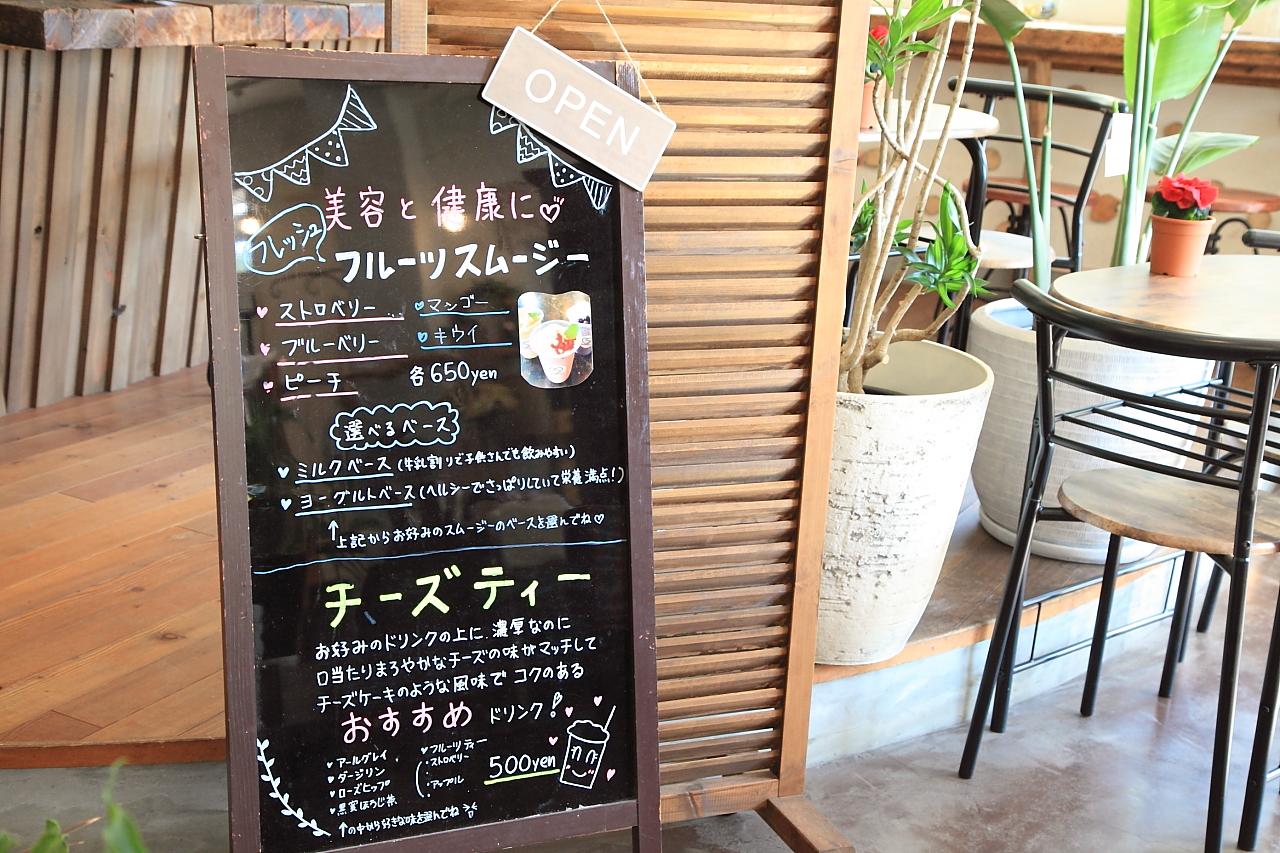 OPEN
美容と健康に♡
フレッシュ
フルーツスムージー
ストロベリー
マンゴー
ブルーベリー
キウイ
ピーチ
各650yen
選べるベース
ミルクベース(牛乳割りで子供さんでも飲みやすい)
ヨーグルトベース(ヘルシーでさっぱりしていて栄養満点!)
↑上記からお好みのスムージーのベースを選んでね♡
チーズティー
お好みのドリンクの上に、濃厚なのに
口当たりまろやかなチーズの味がマッチして
チーズケーキのような風味で コクのある
おすすめ ドリンク!
・アールグレイ
・ダージリン
・ローズヒップ
・黒糖ほうじ茶
フルーツティー
・ストロベリー
・アップル
500yen
↑の中から好きな味を選んでね